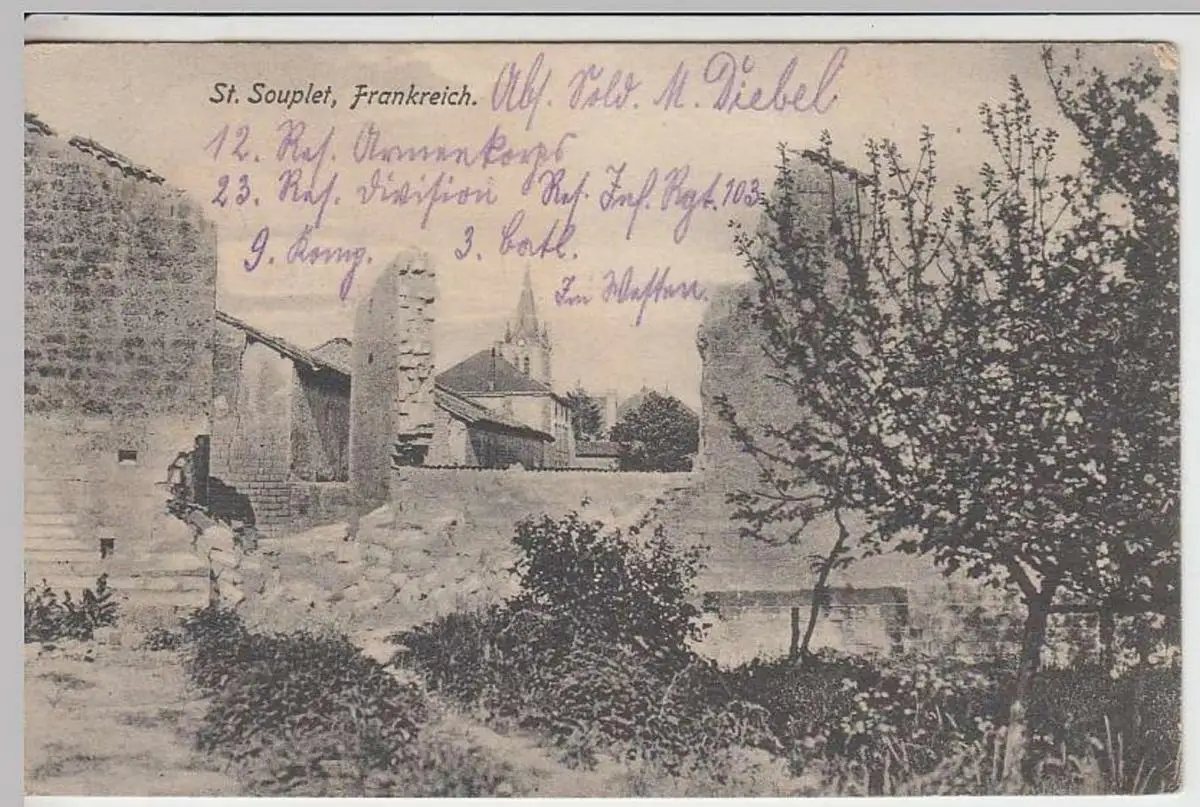 St. Souplet, Frankreich. Abs. Sold. M. Diebel
12. Res. Armeekorps
23. Res. Division Res. Inf. Rgt. 103
9. Komp. 3. Batl.
Im Westen.